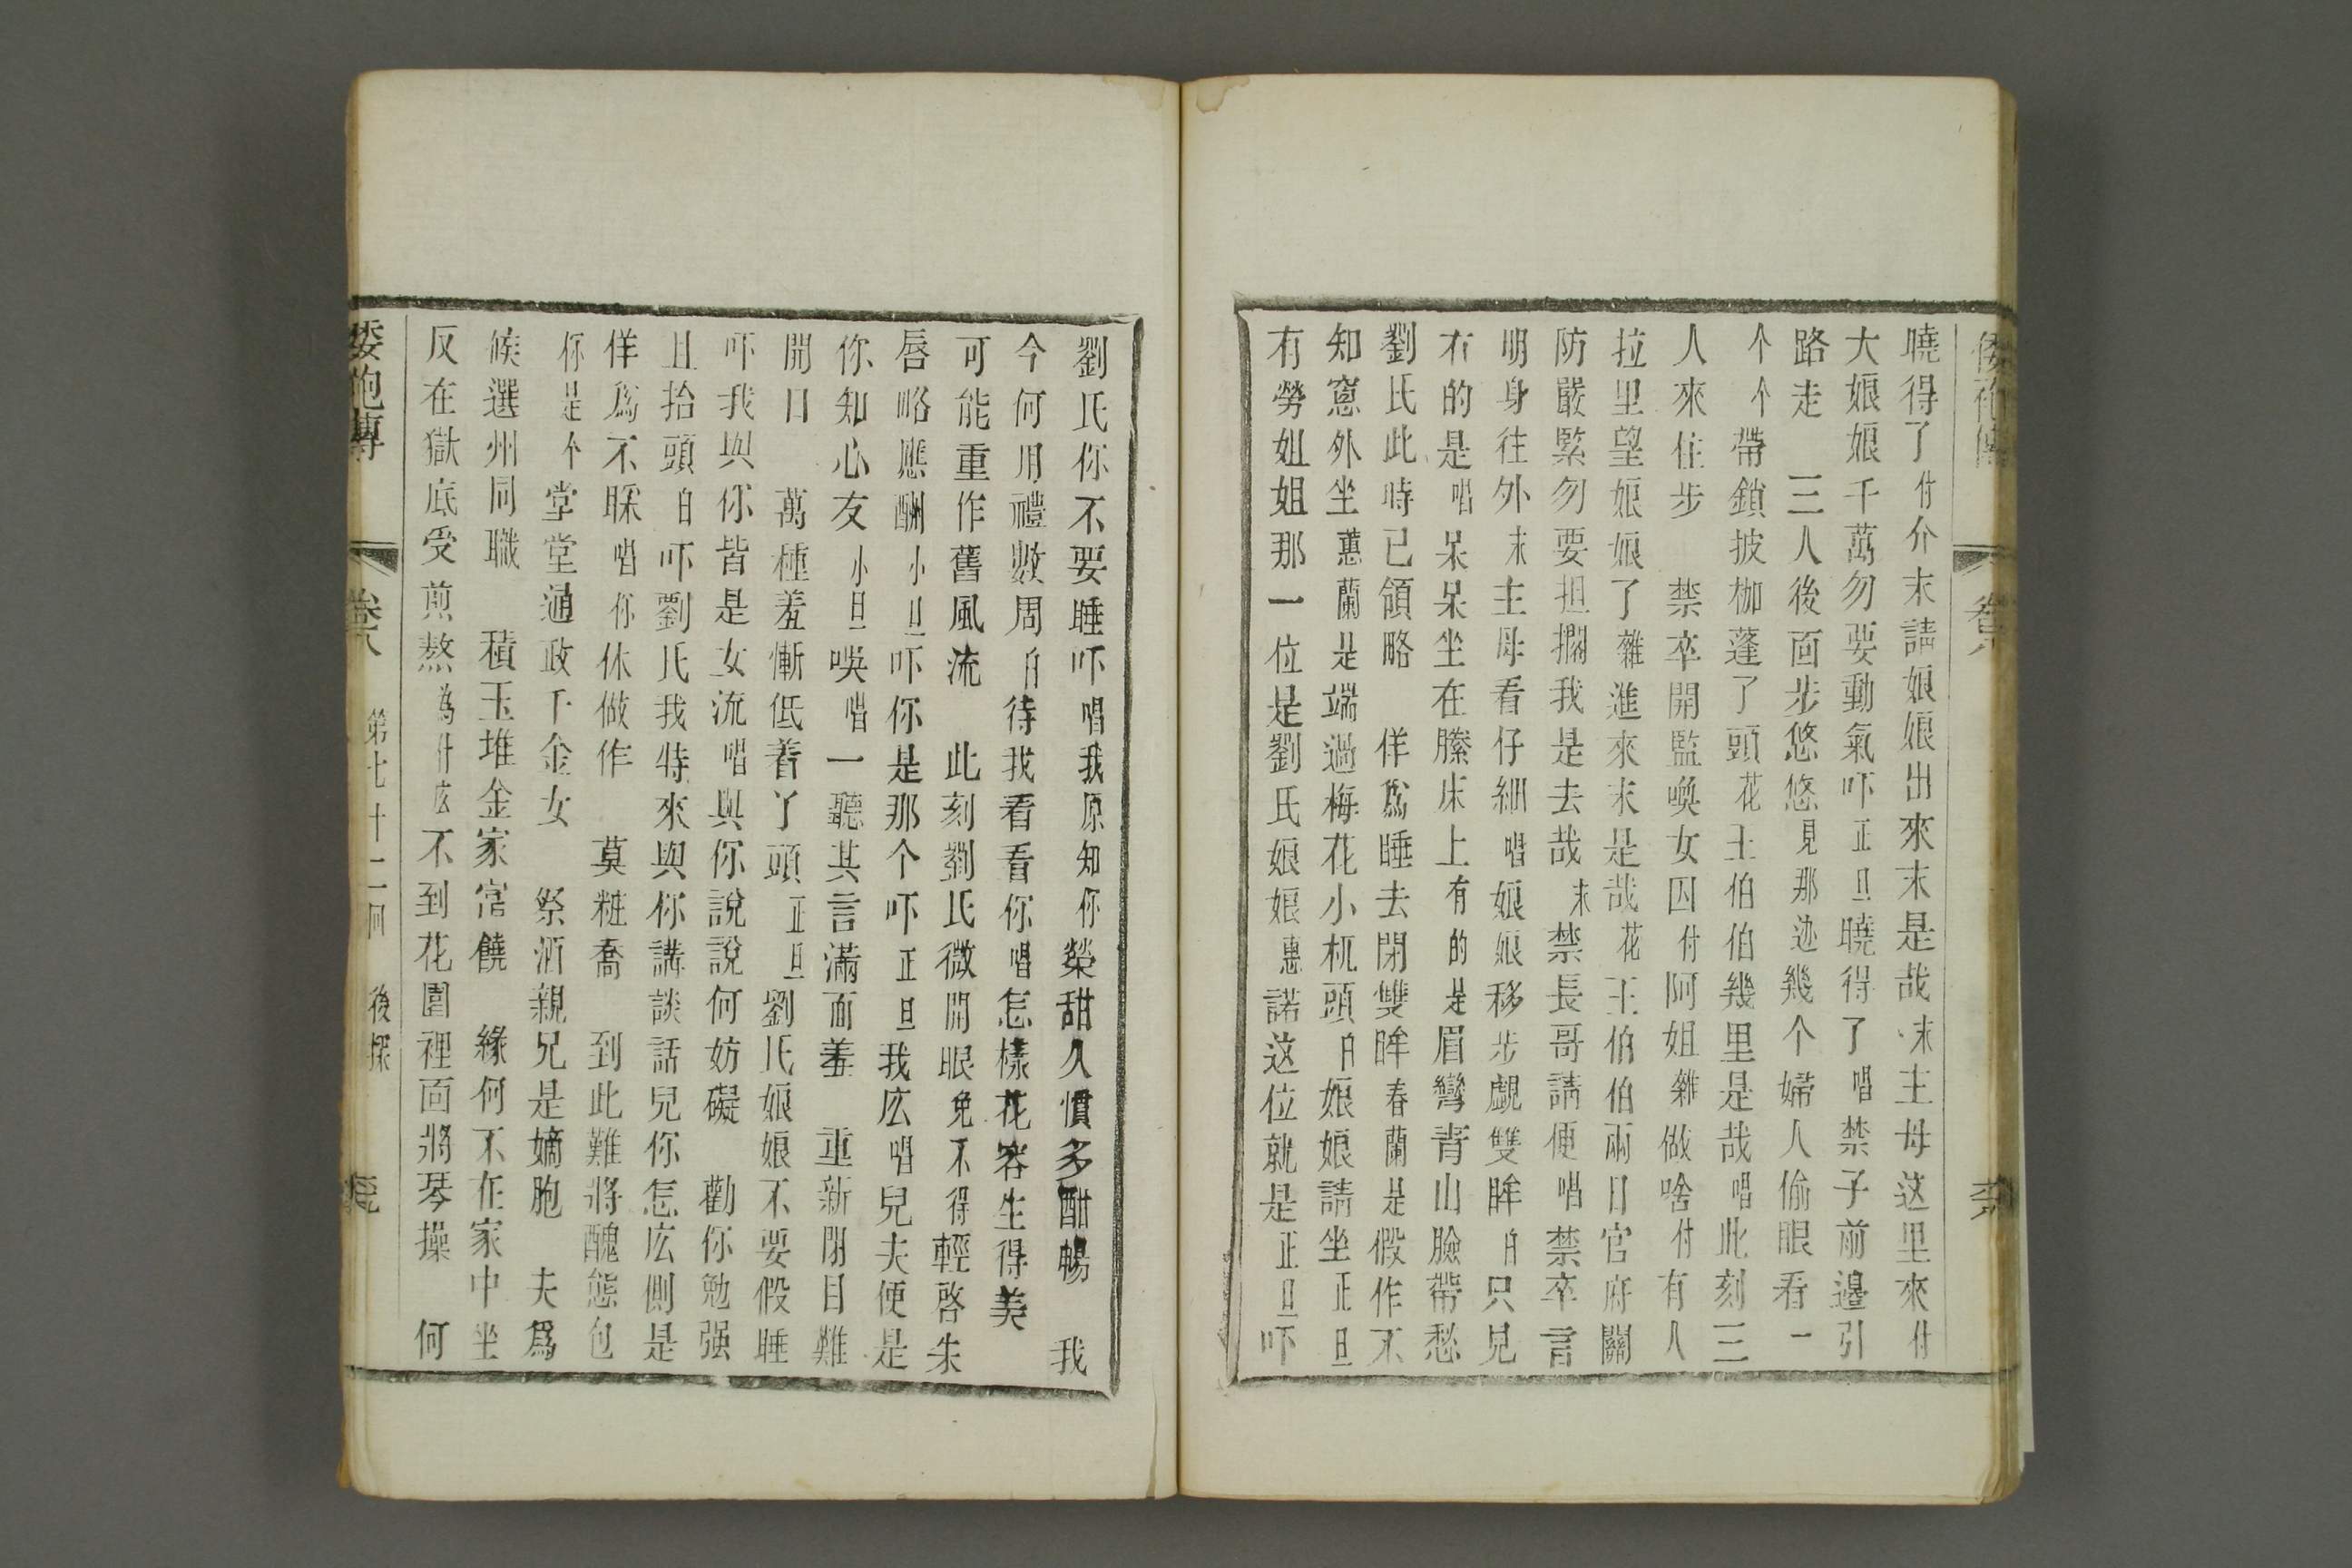 倭袍傳
卷六
曉得了付介末請娘娘出來末是哉末主母这里來付
大娘娘千萬勿要動氣吓正旦曉得了唱禁子前邊引
路走 三人後面步悠悠見那边幾个婦人偷眼看一
个个帶鎖披枷蓬了頭花王伯伯幾里是哉唱此刻三
人來住步 禁卒開監喚女囚付阿姐雜做啥付有人
拉里望娘娘了雜進來末是哉花王伯伯兩日官府關
防嚴緊勿要担擱我是去哉末禁長哥請便唱禁卒言
明身往外末主母看仔細唱娘娘移步覷雙眸白只見
有的是唱呆呆坐在牀床上有的是眉彎青山臉帶愁
劉氏此時已領略 佯爲睡去閉雙眸春蘭是假作不
知窻外坐蕙蘭是端過梅花小杌頭白娘娘請坐正旦
有勞姐姐那一位是劉氏娘娘惠諾这位就是正旦吓
劉氏你不要睡吓唱我原知你榮甜久慣多酣暢 我
今何用禮數周白待我看看你唱怎樣花容生得美
可能重作舊風流 此刻劉氏微開眼免不得輕啓朱
唇略應酬小旦吓你是那个吓正旦我庅唱兒夫便是
你知心友小旦唉唱一聽其言滿面羞 重新閉目難
開口 萬種羞慚低着了頭正旦劉氏娘娘不要假睡
吓我與你皆是女流唱與你說說何妨礙 勸你勉强
且抬頭白吓劉氏我特來與你講談話兒你怎庅側是
佯爲不睬唱你休做作 莫粧喬 到此難將醜態包
你是个堂堂通政千金女 祭酒親兄是嫡胞 夫爲
候選州同職 積玉堆金家富饒 緣何不在家中坐
反在獄底受煎熬為什庅不到花園裡面將琴操 何
倭袍傳
卷六
第七十二回 後探